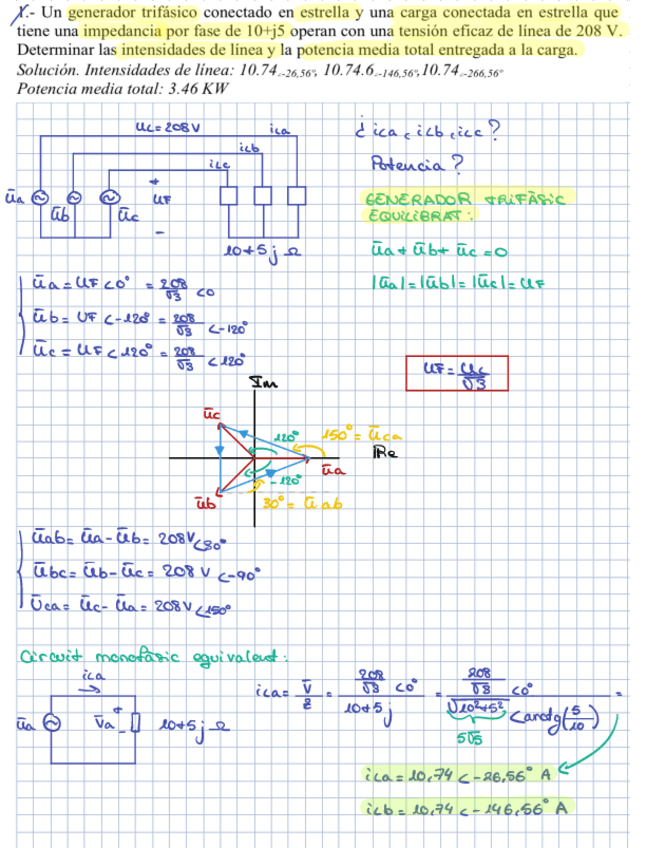 1.- Un generador trifásico conectado en estrella y una carga conectada en estrella que
tiene una impedancia por fase de 10+j5 operan con una tensión eficaz de línea de 208 V.
Determinar las intensidades de línea y la potencia media total entregada a la carga.
Solución. Intensidades de línea: 10.74∠-26,56º, 10.74.6∠-146,56º, 10.74∠-266,56º
Potencia media total: 3.46 KW
UL=208V
iLa
iLb
iLc
¿ iLa, iLb, iLc ?
Potencia?
GENERADOR TRIFÀSIC
EQUILIBRAT:
Ūa + Ūb + Ūc = 0
|Ūa| = |Ūb| = |Ūc| = UF
Ūa
Ūb
Ūc
+
UF
-
10+5j Ω
Ūa = UF <0° = 208/√3 <0
Ūb = UF <-120° = 208/√3 <-120°
Ūc = UF <120° = 208/√3 <120°
UF = UL/√3
Im
Ūc
120°
150° = Ūca
Re
Ūa
-120°
Ūb
30° = Ūab
Ūab = Ūa - Ūb = 208V <30°
Ūbc = Ūb - Ūc = 208 V <-90°
Ūca = Ūc - Ūa = 208V <150°
Circuit monofàsic equivalent:
iLa
Ūa
V̄a
+
-
10+5j Ω
iLa = V̄/Z̄ = 208/√3 <0° / 10+5j = 208/√3 <0° / √10²+5² <arctg(5/10) =
5√5
iLa = 10,74 <-26,56° A
iLb = 10,74 <-146,56° A